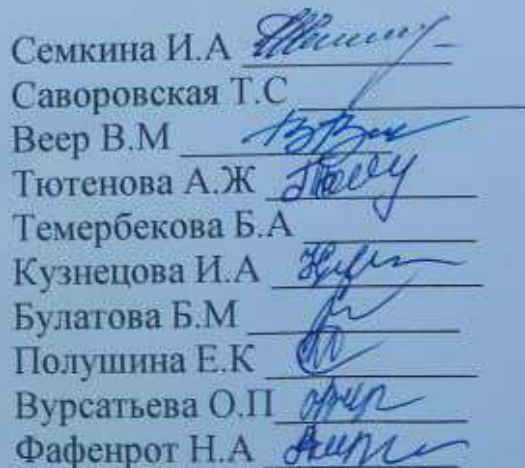 Семкина И.А
Саворовская Т.С
Веер В.М
Тютенова А.Ж
Темербекова Б.А
Кузнецова И.А
Булатова Б.М
Полушина Е.К
Вурсатьева О.П
Фафенрот Н.А